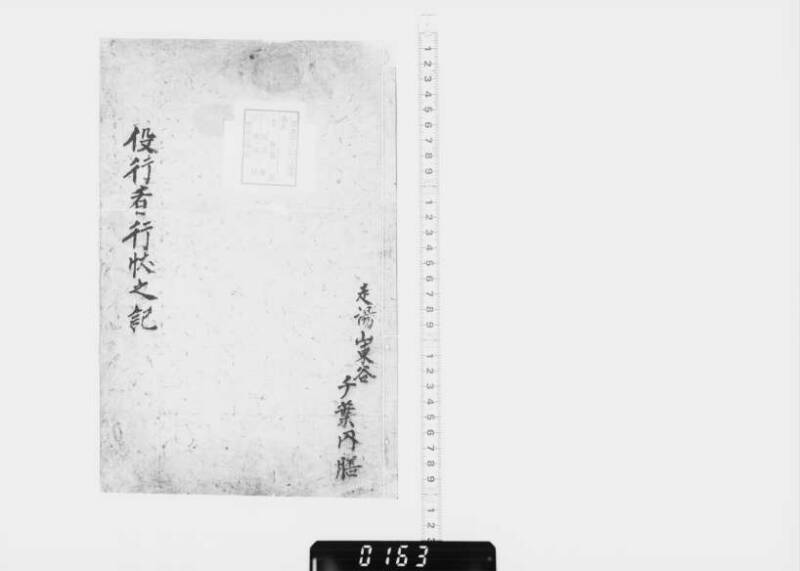 役行者行状之記
走湯山東谷
千葉内膳
0163
1 2 3 4 5 6 7 8 9 1 2 3 4 5 6 7 8 9 1 2 3 4 5 6 7 8 9 1 2